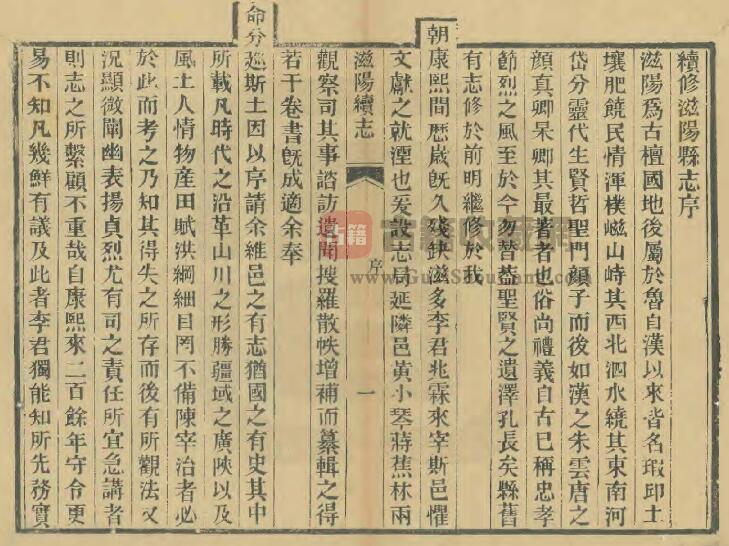 續修滋陽縣志序
滋陽爲古檀國地後屬於魯自漢以來皆名瑕邱土
壤肥饒民情渾樸嵫山峙其西北泗水繞其東南河
岱分靈代生賢哲聖門顏子而後如漢之朱雲唐之
顏真卿杲卿其最著者也俗尚禮義自古已稱忠孝
節烈之風至於今勿替葢聖賢之遺澤孔長矣縣舊
有志修於前明繼修於我
朝康熙間歷歲旣久殘缺滋多李君兆霖來宰斯邑懼
文獻之就湮也爰設志局延隣邑黃小琴蔣蕉林兩
滋陽續志 序 一
觀察司其事諮訪遺聞搜羅散帙增補而纂輯之得
若干卷書旣成適余奉
命分廵斯土因以序請余維邑之有志猶國之有史其中
所載凡時代之沿革山川之形勝疆域之廣陝以及
風土人情物産田賦洪綱細目罔不備陳宰治者必
於此而考之乃知其得失之所存而後有所觀法又
況顯微闡幽表揚貞烈尤有司之責任所宜急講者
則志之所繫顧不重哉自康熙來二百餘年守令更
易不知凡幾鮮有議及此者李君獨能知所先務實
古籍